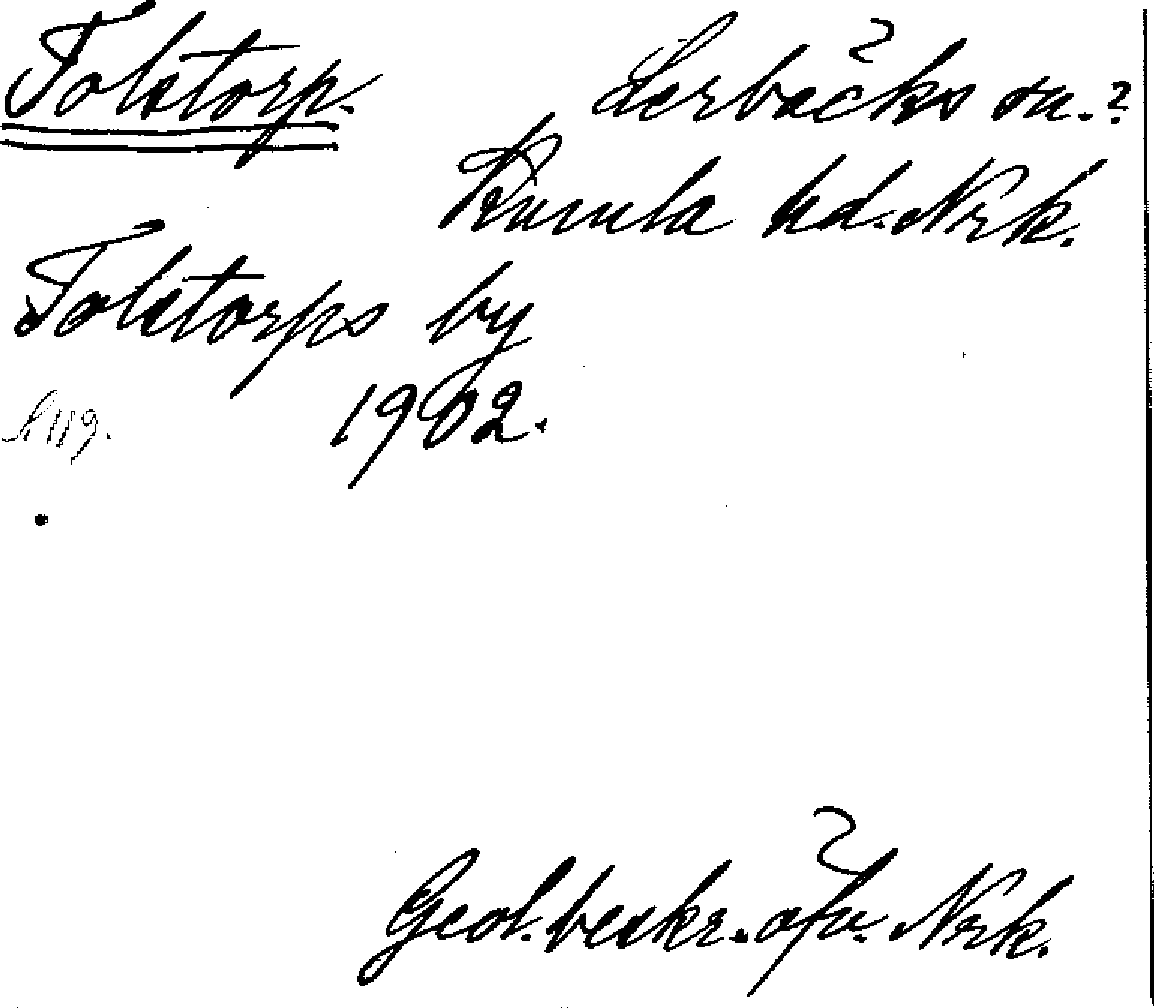 Tolstorp. Lerbäcks sn.?
Kumla hd. Nrk.
Tolstorps by
1902.
S. 119.
Geol. beskr. öfv. Nrk.